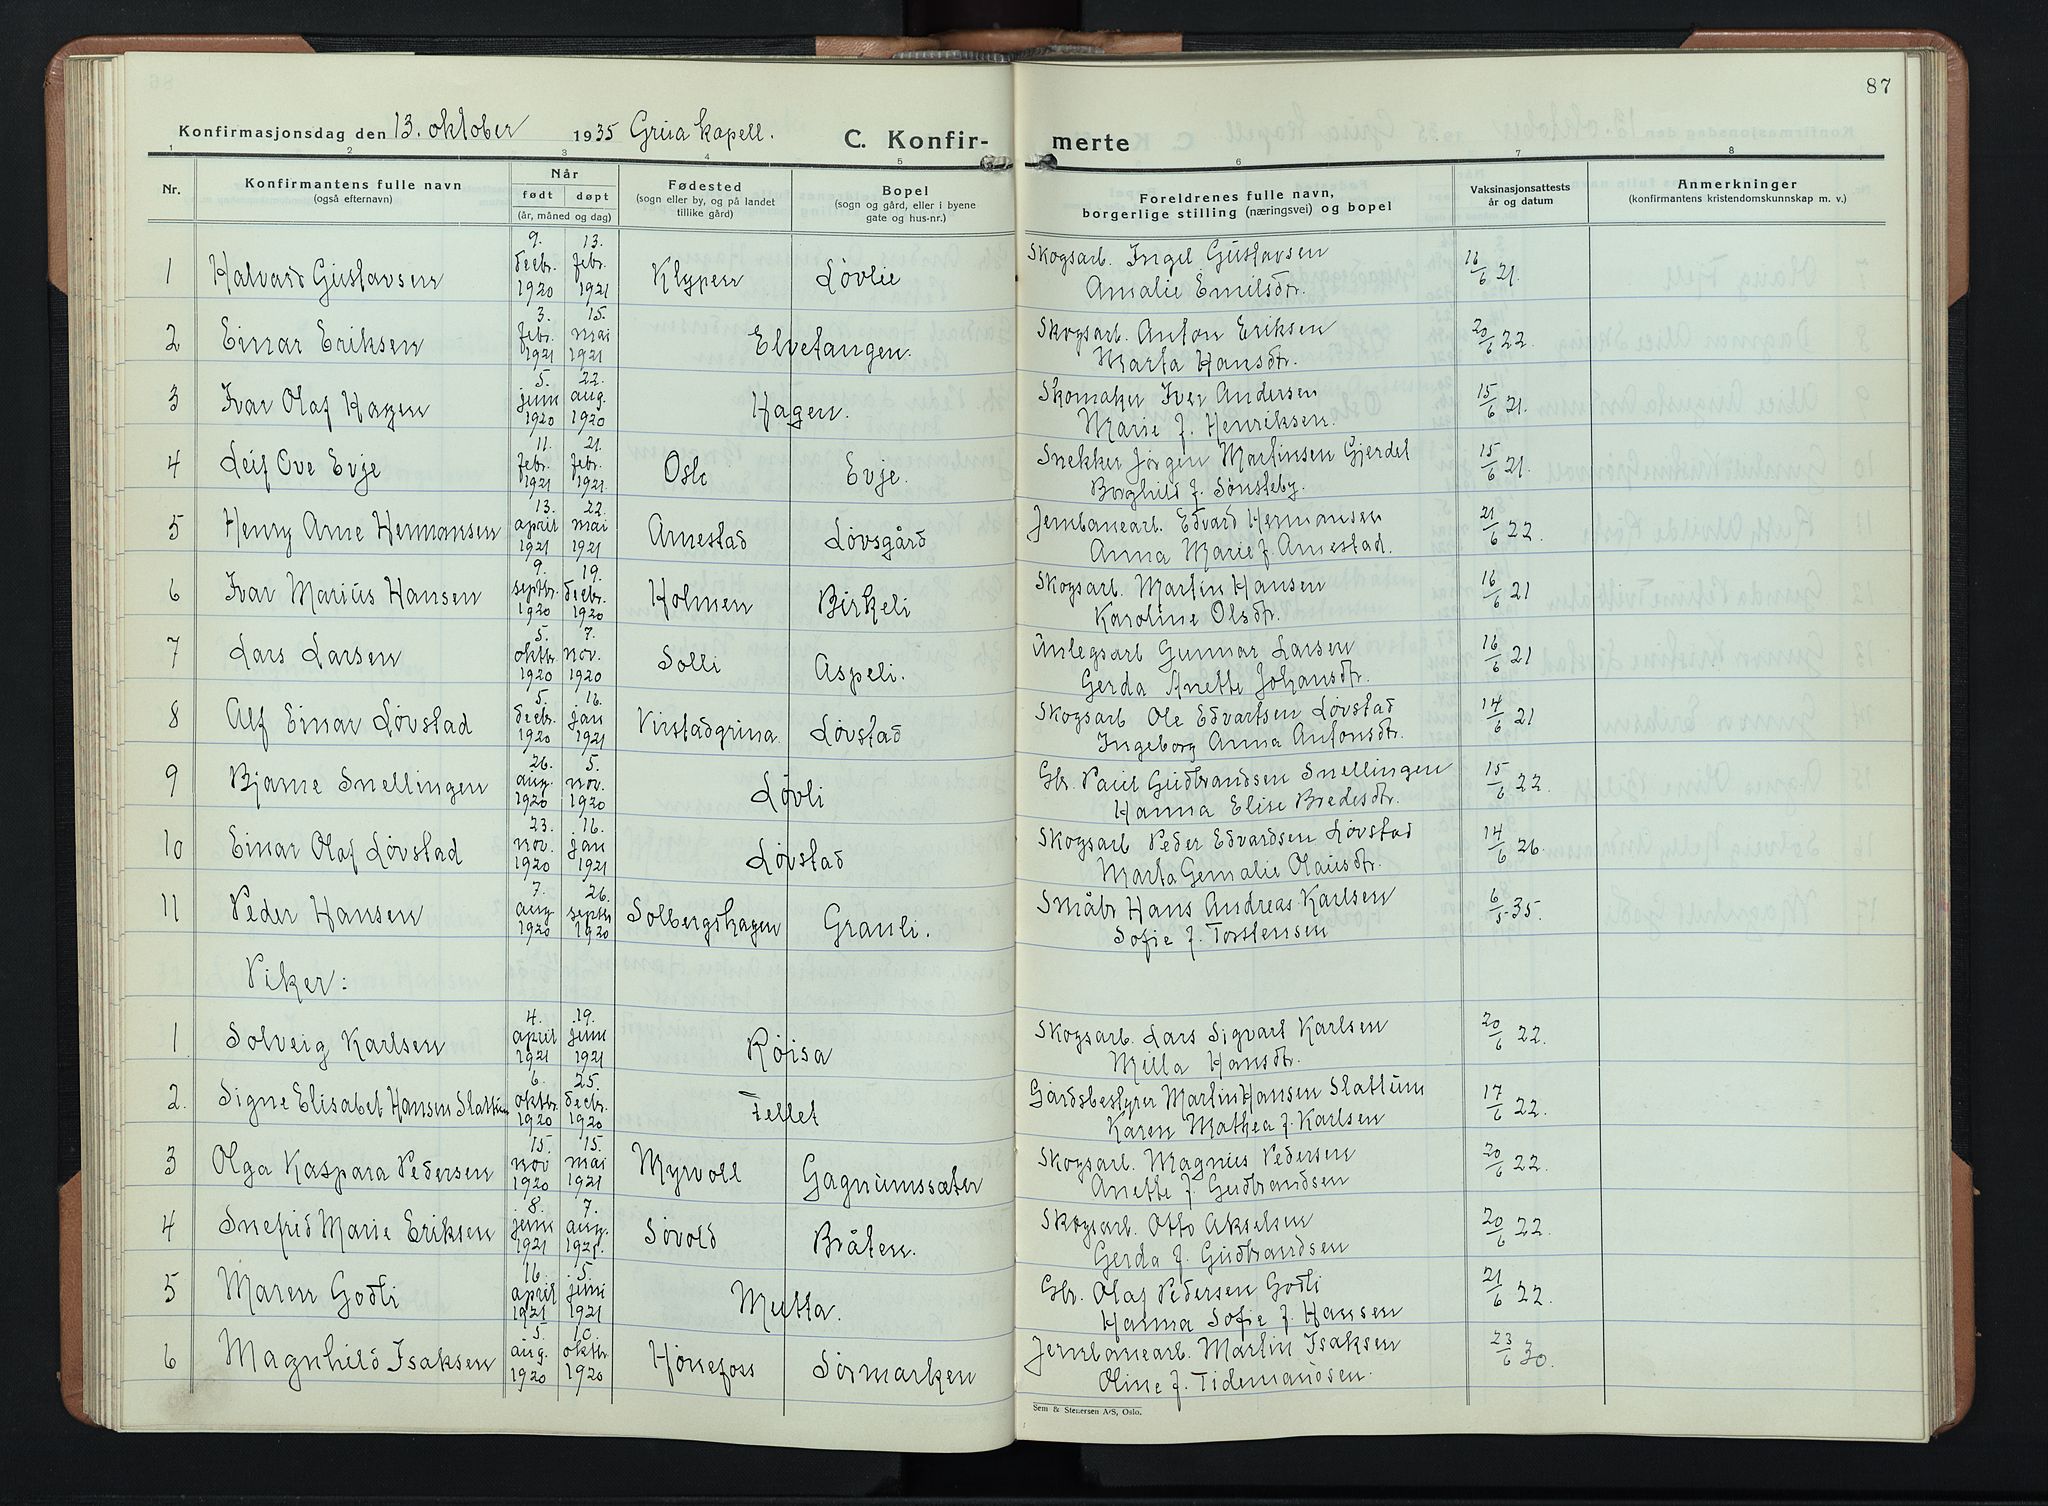 87
Konfirmasjonsdag den 13. oktober 1935 Grua kapell. C. Konfir- merte
1 2 3 4 5 6 7 8
Nr. Konfirmantens fulle navn (også efternavn) Når født døpt (år, måned og dag) Fødested (sogn eller by, og på landet tillike gård) Bopel (sogn og gård, eller i byene gate og hus-nr.) Foreldrenes fulle navn, borgerlige stilling (næringsvei) og bopel Vaksinasjonsattests år og datum Anmerkninger (konfirmantens kristendomskunnskap m. v.)
1 Halvard Gustavsen 9. decbr. 1920 13. febr. 1921 Klypen Løvlie Skogsarb. Ingel Gustavsen Amalie Emilsdtr. 16/6 21.
2 Einar Eriksen 3. febr. 1921 15. mai 1921 Elvetangen. Skogsarb. Anton Eriksen Marta Hansdtr. 20/6 22.
3 Ivar Olaf Hagen 5. juni 1920 22. aug. 1920 Hagen. Skomaker Iver Andersen Marie f. Henriksen. 15/6 21.
4 Leif Ove Evje 11. febr. 1921 21. febr. 1921 Oslo Evje. Snekker Jørgen Martinsen Gjerdet Borghild f. Sønsteby. 15/6 21.
5 Henry Arne Hermansen 13. april 1921 22. mai 1921 Arnestad Løvsgård Jernbanearb. Edvard Hermansen Anna Marie f. Arnestad. 21/6 22.
6 Ivar Marius Hansen 9. septbr. 1920 19. decbr. 1920 Holmen Birkeli Skogsarb. Martin Hansen Karoline Olsdtr. 16/6 21
7 Lars Larsen 5. oktbr. 1920 7. nov. 1920 Solli Aspeli. Anlegsarb Gunnar Larsen Gerda Anette Johansdtr. 16/6 21
8 Alf Einar Løvstad 5. decbr. 1920 16. jan 1921 Virstadgrina. Løvstad Skogsarb Ole Edvartsen Løvstad Ingeborg Anna Antonsdtr. 14/6 21
9 Bjarne Snellingen 26. aug. 1920 5. nov. 1920 Løvli Gbr. Paul Gudbrandsen Snellingen Hanna Elise Bredesdtr. 15/6 22.
10 Einar Olaf Løvstad 23. nov. 1920 16. jan 1921 Løvstad Skogsarb Peder Edvardsen Løvstad Marta Gemalie Olausdtr. 14/6 26.
11 Peder Hansen 7. aug 1920 26. septbr 1920 Solbergshagen Granli. Småbr Hans Andreas Karlsen Sofie f. Torstensen 6/5 35.
Viker:
1 Solveig Karlsen 4. april 1921 19. juni 1921 Røisa Skogsarb. Lars Sigvart Karlsen Milla Hansdtr. 20/6 22.
2. Signe Elisabet Hansen Slattum 6. oktbr. 1920 25. decbr. 1920 Fellet Gårdsbestyrer Martin Hansen Slattum Karen Mathea f. Karlsen 17/6 22.
3 Olga Kaspara Pedersen 15. nov 1920 15. mai 1921 Myrvoll Gagnumssæter Skogsarb. Magnus Pedersen Anette f. Gudbrandsen 20/6 22.
4 Snefrid Marie Eriksen 8. juni 1921 7. aug. 1921. Søvold Bråten. Skogsarb. Otto Akselsen Gerda f. Gudbrandsen 20/6 22.
5 Maren Godli 16. april 1921 5. juni 1921 Mutta. Gbr. Olaf Pedersen Godli Hanna Sofie f. Hansen 21/6 22.
6 Magnhild Isaksen 5. aug. 1920 10. oktbr 1920 Hønefoss Sørmarken Jernbanearb. Martin Isaksen Oline f. Tidemandsen. 23/6 30.
Sem & Stenersen A/S, Oslo.